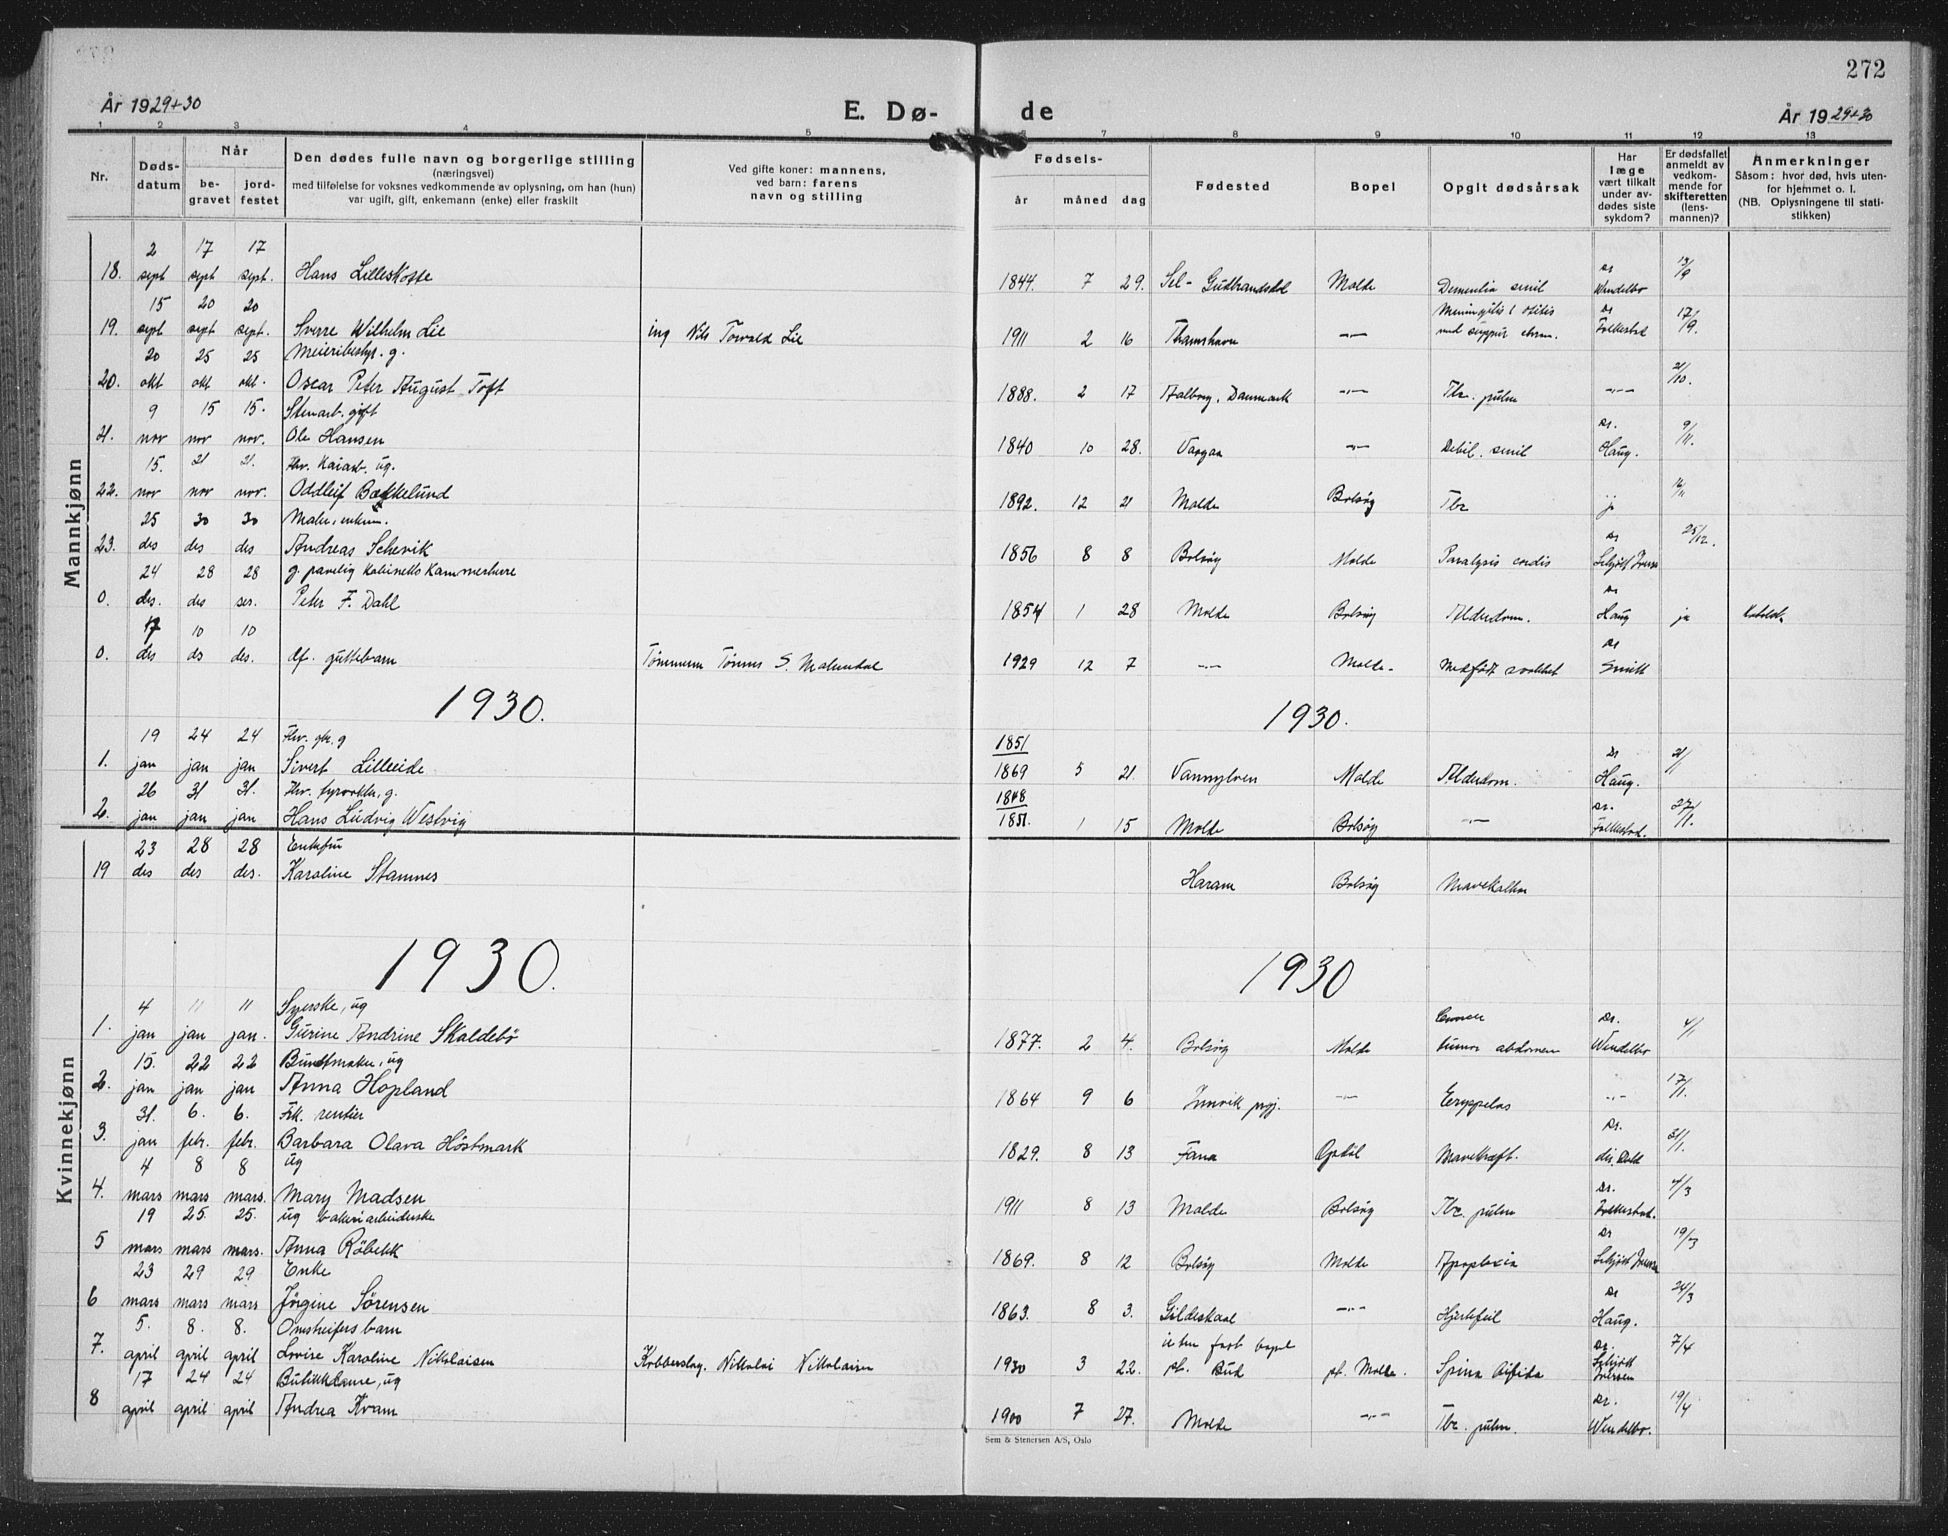 272
År 1929+30
E. Dø-
de
År 1929+30
1 2 3 4 5 6 7 8 9 10 11 12 13
Nr.
Døds-
datum
Når
be-
gravet
jord-
festet
Den dødes fulle navn og borgerlige stilling
(næringsvei)
med tilføielse for voksnes vedkommende av oplysning, om han (hun)
var ugift, gift, enkemann (enke) eller fraskilt
Ved gifte koner: mannens,
ved barn: farens
navn og stilling
Fødsels-
år måned dag
Fødested
Bopel
Opgit dødsårsak
Har
læge
vært tilkalt
under av-
dødes siste
sykdom?
Er dødsfallet
anmeldt av
vedkom-
mende for
skifteretten
(lens-
mannen)?
Anmerkninger
Såsom: hvor død, hvis uten-
for hjemmet o. l.
(NB. Oplysningene til stati-
stikken)
Mannkjønn
2 17 17
18. sept sept sept. Hans Lilleskotte 1844. 7 29. Sel- Gudbrandsdal Molde Dementia senil Dr Wendelbo 13/9
15 20 20
19. sept. sept sept. Sverre Wilhelm Lie ing Nils Torvald Lie 1911 2 16 Thamshavn -"- Dr Folkestad 17/9.
20 25 25 Meieribestyr. g.
20. okt okt okt. Oscar Peter August Toft 1888. 2 17 Aalborg, Danmark -"- Tbc. pulm -"- 21/10.
9 15 15. Stenarb. gift
21. nov nov nov. Ole Hansen 1840 10 28. -"- Debil. senil Dr. Haug. 9/11.
15. 21 21. ug.
22. nov nov nov. Oddleif Bækkelund 1892. 12 21 Molde Bolsøy Tbc ja 16/11
25 30 30 Maler, enkem.
23. des des des Andreas Schevik 1856 8 8 Bolsøy Molde Paralysis cordis Dr 25/12.
24 28 28 g. pavelig kabinetts kammerherre
0. des. des des. Peter F. Dahl 1854 1 28 Molde Bolsøy Alderdom. Dr Haug ja
17 10 10
0. des ds des. df. guttebarn Tømmerm 1929 12 7 -"- Molde- Medfødt svakhet Dr Smith
1930. 1930.
19 24 24 1851
1. jan jan jan Sivert Lilleeide 1869 5 21. Vannylven Molde Alderdom. Dr Haug. 21/1
26 31 31. g. 1848
2. jan jan jan Hans Ludvig Westvig 1851. 1 15 Molde Bolsøy -"- Dr. Folkestad. 27/1.
Kvinnekjønn
23 28 28 Enkefru
19 des des des. Karoline Stamnes Haram Bolsøy
1930. 1930
4 11 11 Syerske, ug
1. jan jan jan. Gurine Andrine Skaldebø 1877. 2 4. Bolsøy Molde Cancer tumor abdomen Dr. Wendelbo 4/1
15. 22 22 Buntmaker, ug
2. jan jan jan Anna Hopland 1864 9 6 Innvik -"- -"- 17/1.
31. 6. 6. Frk. rentier
3. jan febr. febr. Barbara Olava Høstmark 1829. 8 13 Fana Opdøl Mavekræft. Dr. 31/1.
4 8 8 ug
4. mars mars mars. Mary Madsen 1911 8 13 Molde Bolsøy Tbc. pulm Dr. Folkestad. 4/3
19 25. 25. ug
5 mars mars mars. Anna Røbekk 1869. 8 12 Bolsøy Molde Apoplexia Dr 19/3
23 29 29 Enke
6 mars mars mars Jørgine Sørensen 1863. 8 3. Gildeskaal -"- Hjertefeil Dr Haug. 24/3
5. 8. 8. Omstreifers barn
7. april april april Lovise Karoline Nikolaisen Kobberslag. Nikolai Nikolaisen 1930 3 22. uten fast bopel pt. Bud pt. Molde. Spina bifida Dr. 7/4
17 24 24 Butikkdame, ug
8 april april april Andrea Kvam 1900 7 27. Molde -"- Tbc. pulm. Dr. Wendelbo. 19/4
Sem & Stenersen A/S, Oslo